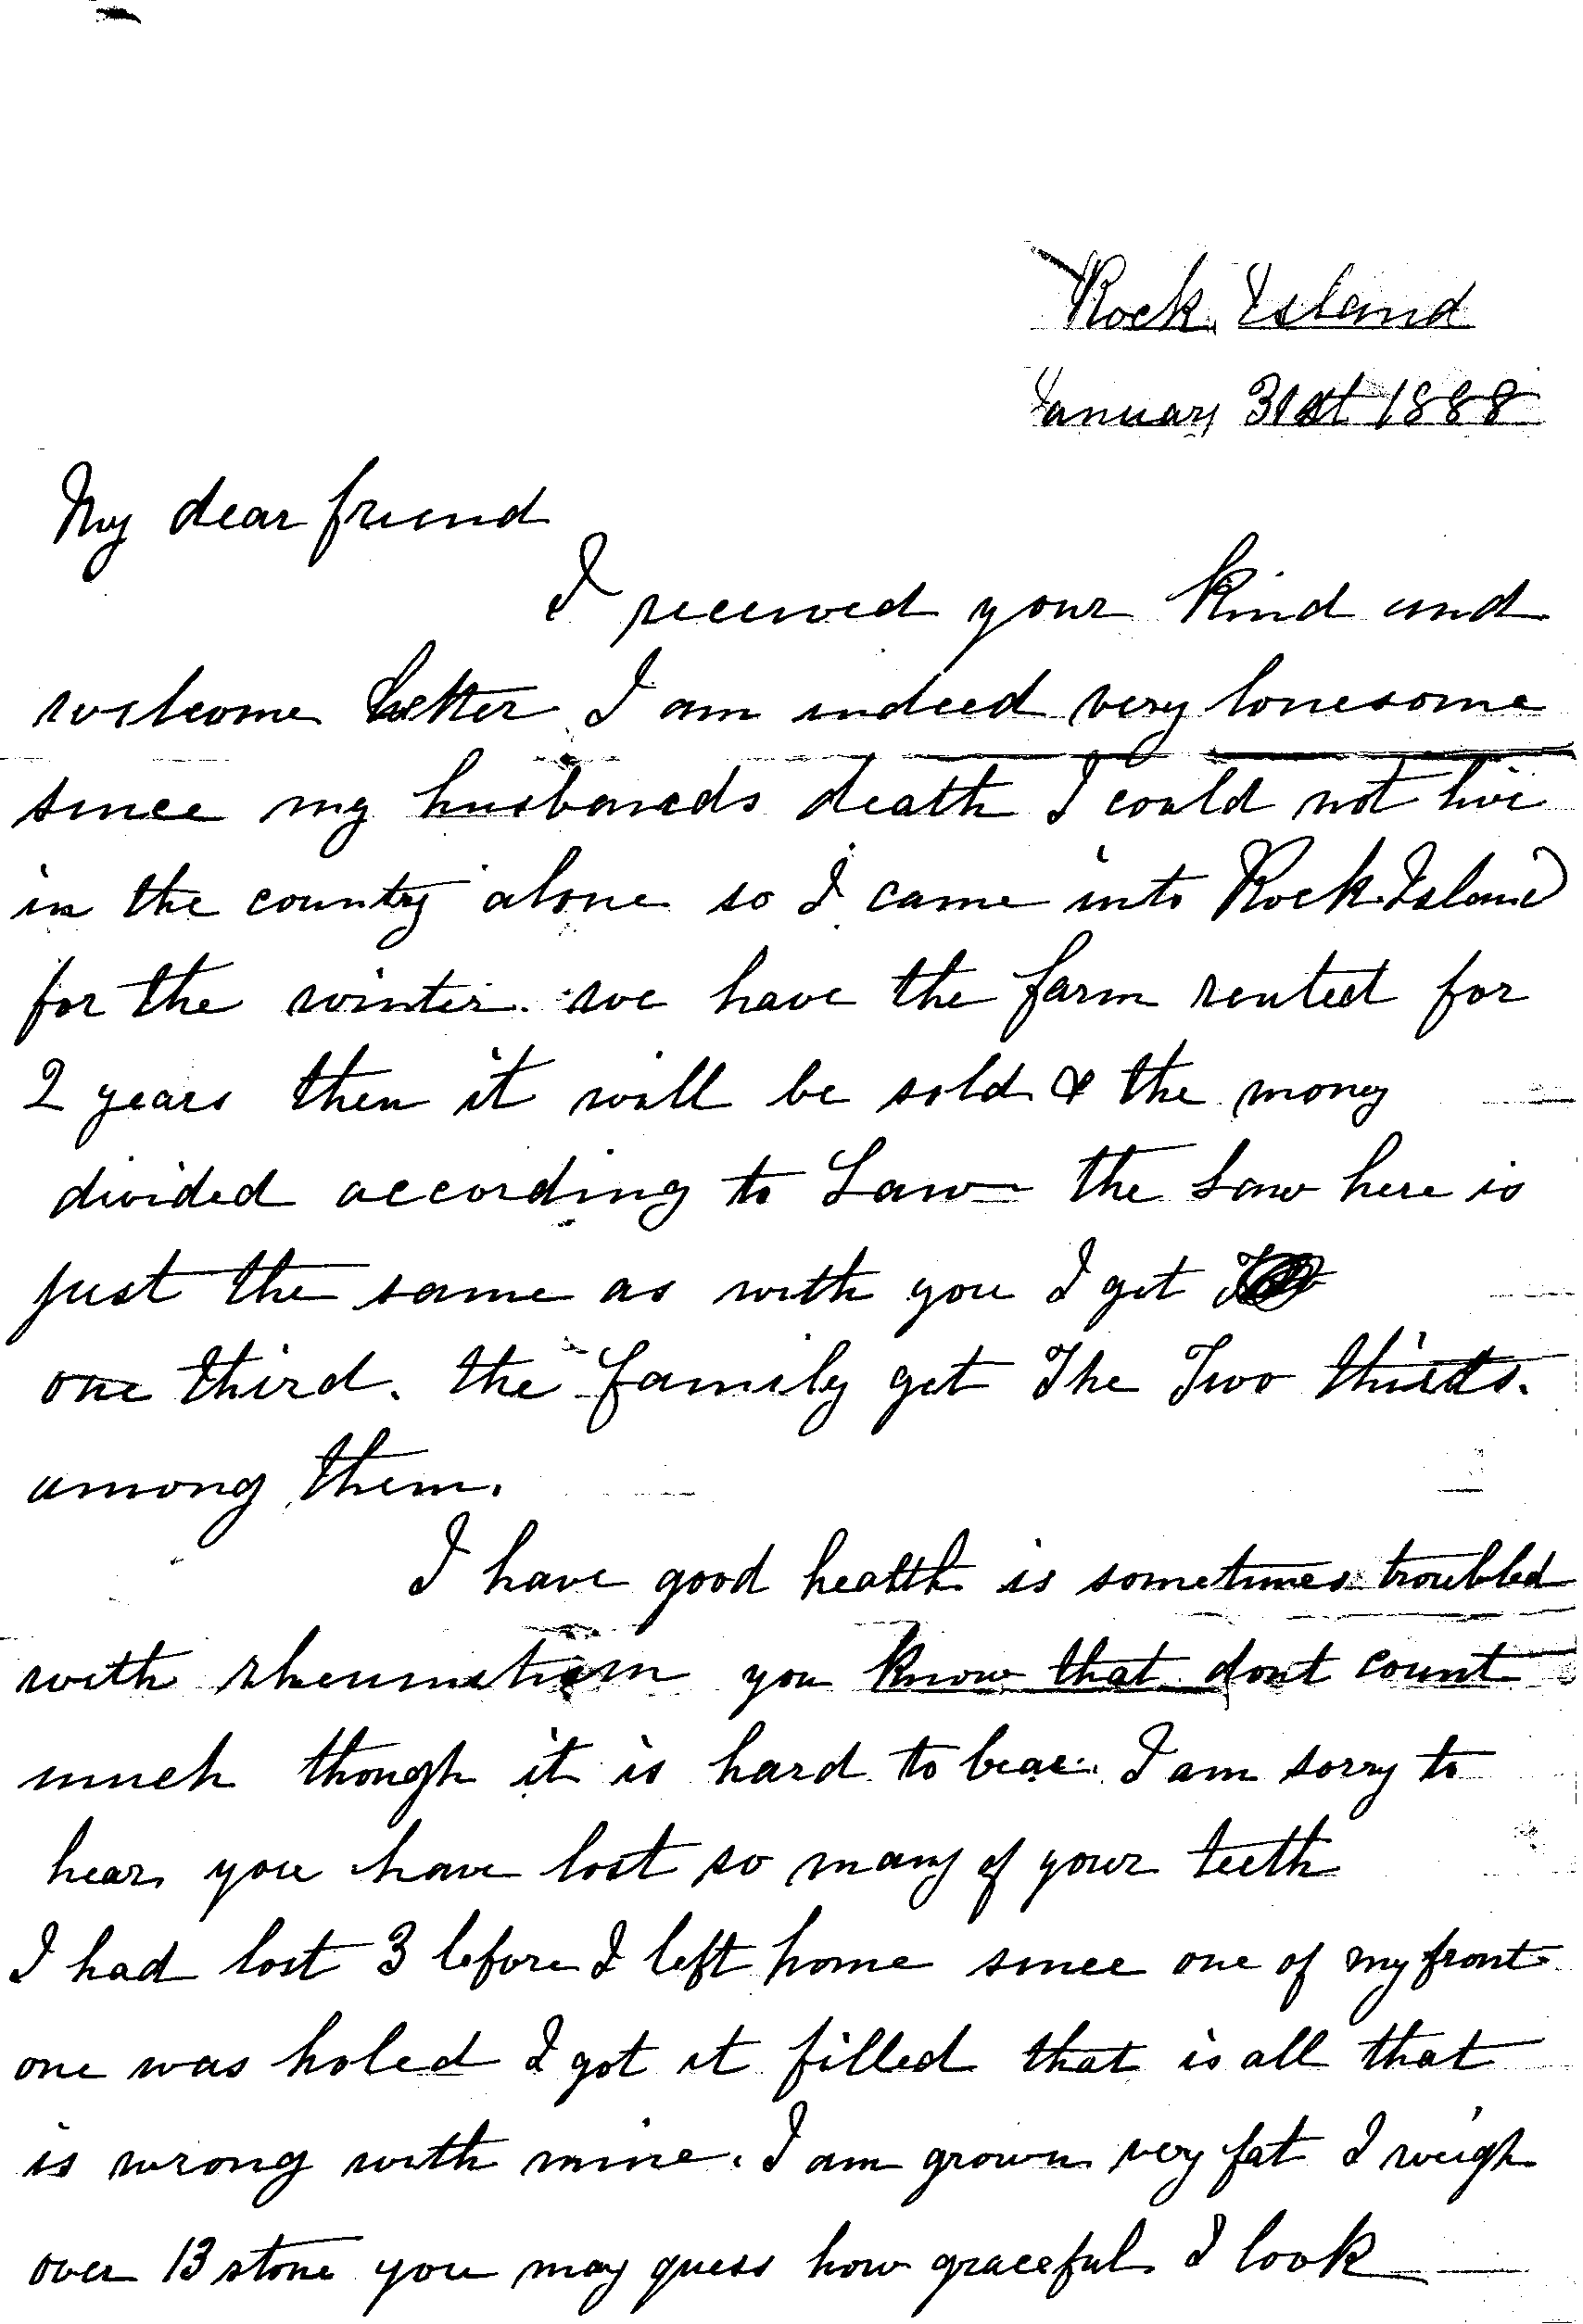 Rock Island
January 31st 1888
My dear friend
I received your kind and
welcome letter I am indeed very lonesome
since my husbands death I could not live
in the country alone so I came into Rock Island
for the winter. we have the farm rented for
2 years then it will be sold & the mony
divided according to Law the Law here is
just the same as with you I get
one third. the family get The Two thirds.
among them.
I have good health is sometimes troubled
with rheumatism you know that dont count
much though it is hard to bear. I am sorry to
hear you have lost so many of your teeth
I had lost 3 before I left home since one of my front
one was holed I got it filled that is all that
is wrong with mine. I am grown very fat I weigh
over 13 stone you may guess how graceful I look